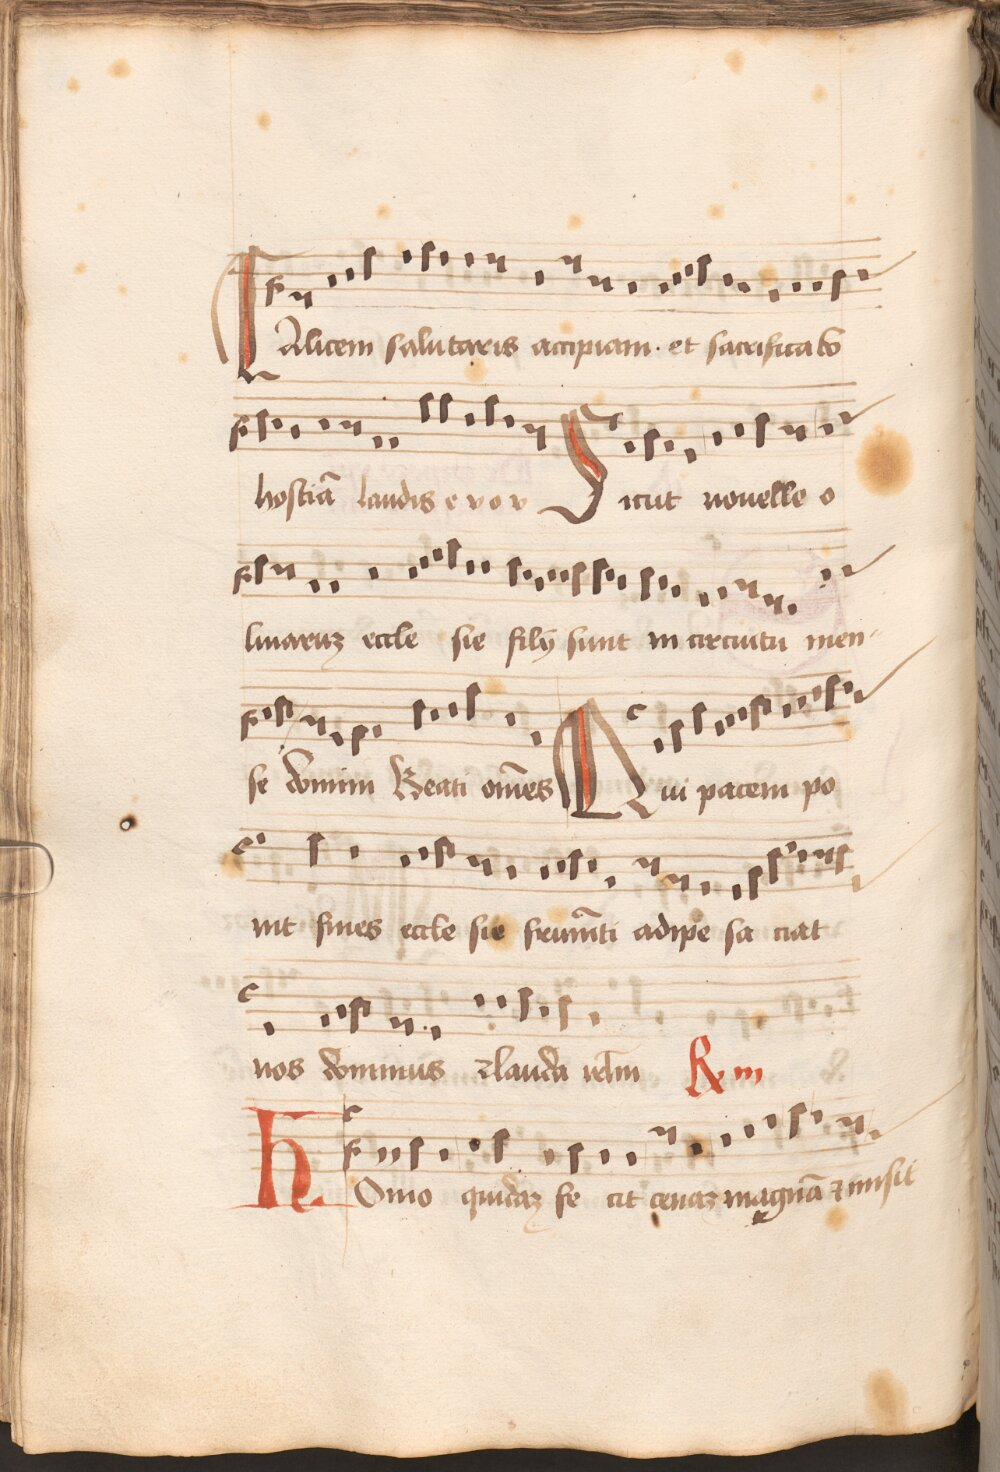 CAlicem salutaris accipiam · et sacrificabo
hostiā laudis e v o v Sicut nouelle o
liuaruz eccle sie filij sunt in circuitu men-
se domini Beati om̄es Qui pacem po
nit fines eccle sie frumēti adipe sa ciat
nos dominus Lauda irlm R m
hOmo quidaz fe cit cenaz magnā ⁊ misit